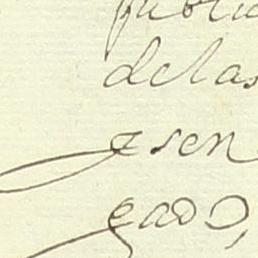 public
delas
esen
gado,